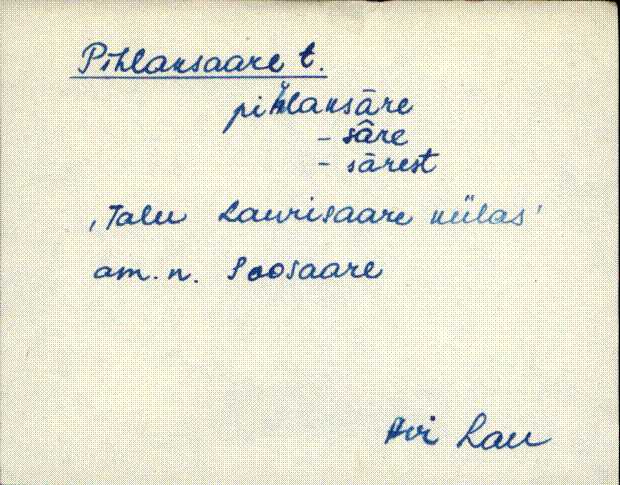 Pihlaksaare t.
pih̆laksāre
- sâre
- sārest
‚Talu Laurisaare külas'
am. n. Soosaare
Avi Lau